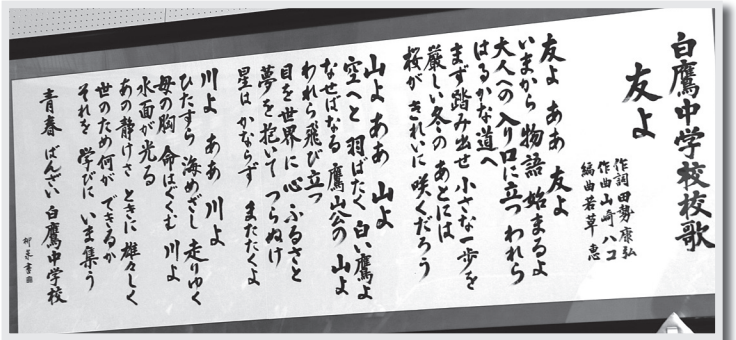 白鷹中学校校歌
友よ
作詞 田勢康弘
作曲 山崎ハコ
編曲 若草 恵
友よ ああ 友よ
いまから 物語 始まるよ
大人への 入り口に立つ われら
はるかな道へ
まず踏み出せ 小さな一歩を
厳しい冬の あとには
桜が きれいに 咲くだろう
山よ ああ 山よ
空へと 羽ばたく 白い鷹よ
なせばなる 鷹山公の 山よ
われら飛び立つ
目を世界に 心 ふるさと
夢を抱いて つらぬけ
星は かならず またたくよ
川よ ああ 川よ
ひたすら 海めざし 走りゆく
母の胸 命はぐくむ 川よ
水面が光る
あの静けさ ときに 雄々しく
世のため何が できるか
それを 学びに いま集う
青春 ばんざい 白鷹中学校